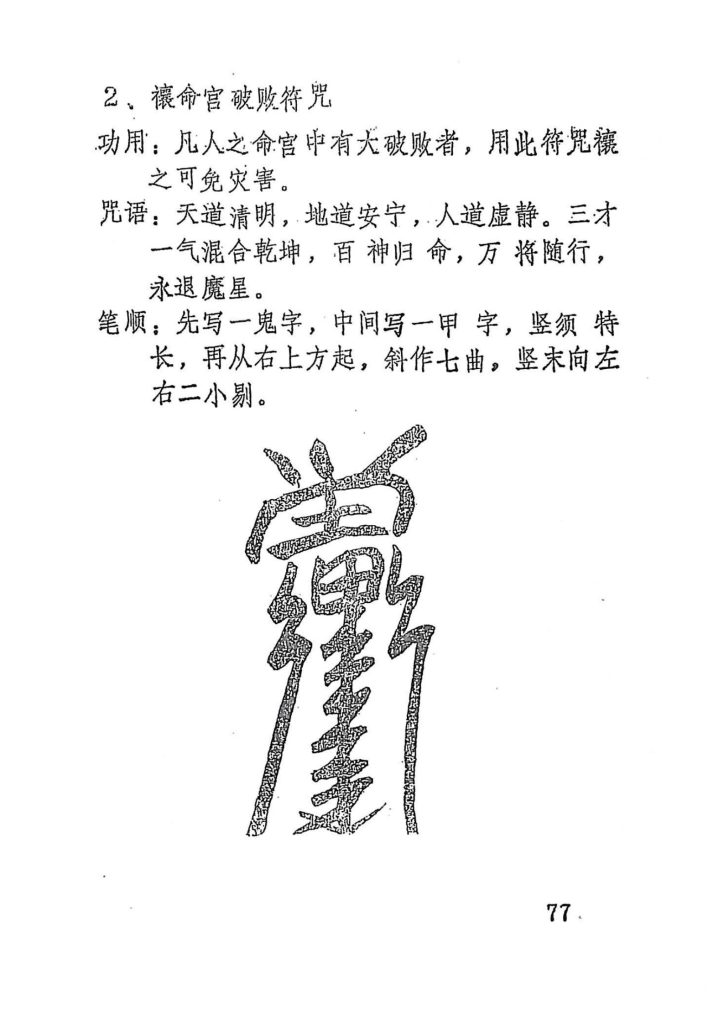 2、禳命宫破败符咒
功用：凡人之命宫中有大破败者，用此符咒禳
之可免灾害。
咒语：天道清明，地道安宁，人道虚静。三才
一气混合乾坤，百神归命，万将随行，
永退魔星。
笔顺：先写一鬼字，中间写一甲字，竖须特
长，再从右上方起，斜作七曲，竖末向左
右二小剔。
77